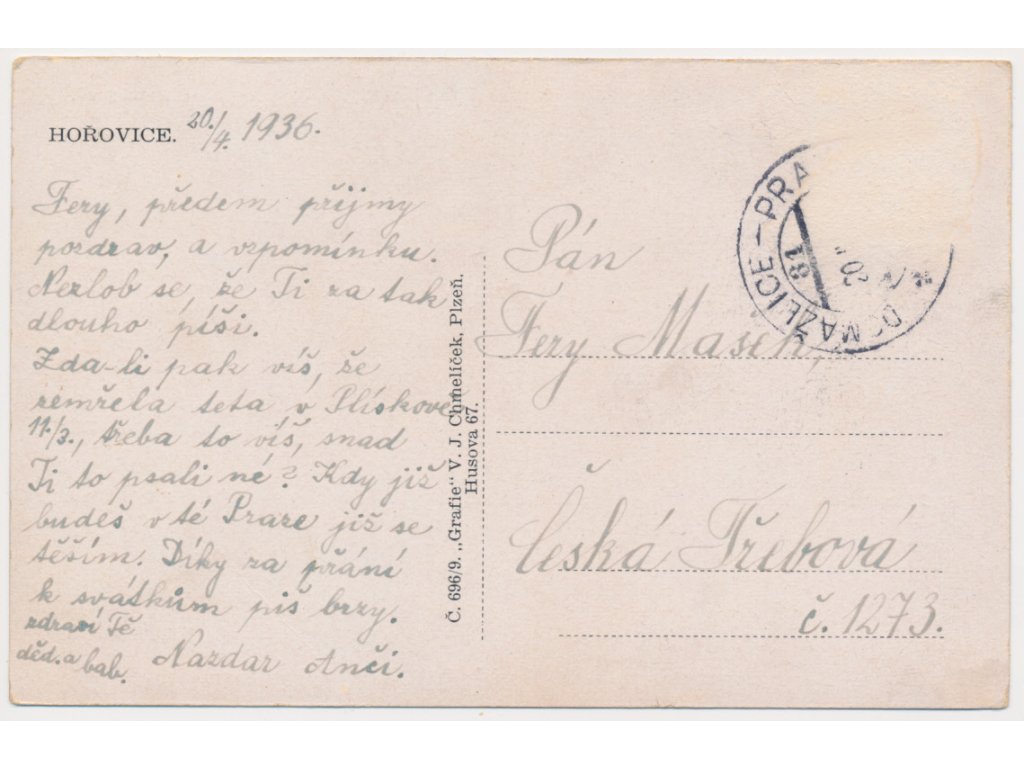 HOŘOVICE. 20./4. 1936.
Fery, předem přijmy
pozdrav, a vzpomínku.
Nezlob se, že Ti za tak
dlouho píši.
Zda-li pak víš, že
zemřela teta v Plískově
11./3., třeba to víš, snad
Ti to psali né? Kdy již
budeš v té Praze již se
těším. Díky za přání
k svátkům piš brzy.
zdraví Tě
děd. a bab. Nazdar Anči.
Č. 696/9. „Grafie“ V. J. Chmelíček, Plzeň.
Husova 67.
Pán
Fery Mašek,
Česká Třebová
č. 1273.
DOMAŽLICE – PRA
81
20